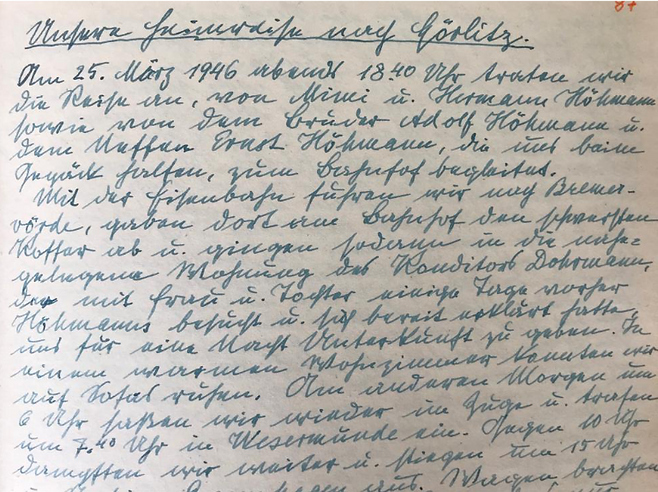 87
Unsere Heimreise nach Görlitz.
Am 25. März 1946 abends 18.40 Uhr traten wir
die Reise an, von Mimi u. Hermann Höhmann
sowie von dem Bruder Adolf Höhmann u.
dem Neffen Ernst Höhmann, die uns beim
Gepäck halfen, zum Bahnhof begleitet.
Mit der Eisenbahn fuhren wir nach Bremer-
vörde, gaben dort am Bahnhof den schwersten
Koffer ab u. gingen sodann in die nahe-
gelegene Wohnung des Konditors Dohrmann,
der mit Frau u. Tochter einige Tage vorher
Höhmanns besucht u. sich bereit erklärt hatte,
uns für eine Nacht Unterkunft zu geben. In
einem warmen Wohnzimmer konnten wir
auf Sofas ruhen. Am anderen Morgen um
6 Uhr saßen wir wieder im Zuge u. trafen
um 7.40 Uhr in Wesermünde ein. Gegen 10 Uhr
dampften wir weiter u. stiegen um 15 Uhr
aus. Wagen brachten